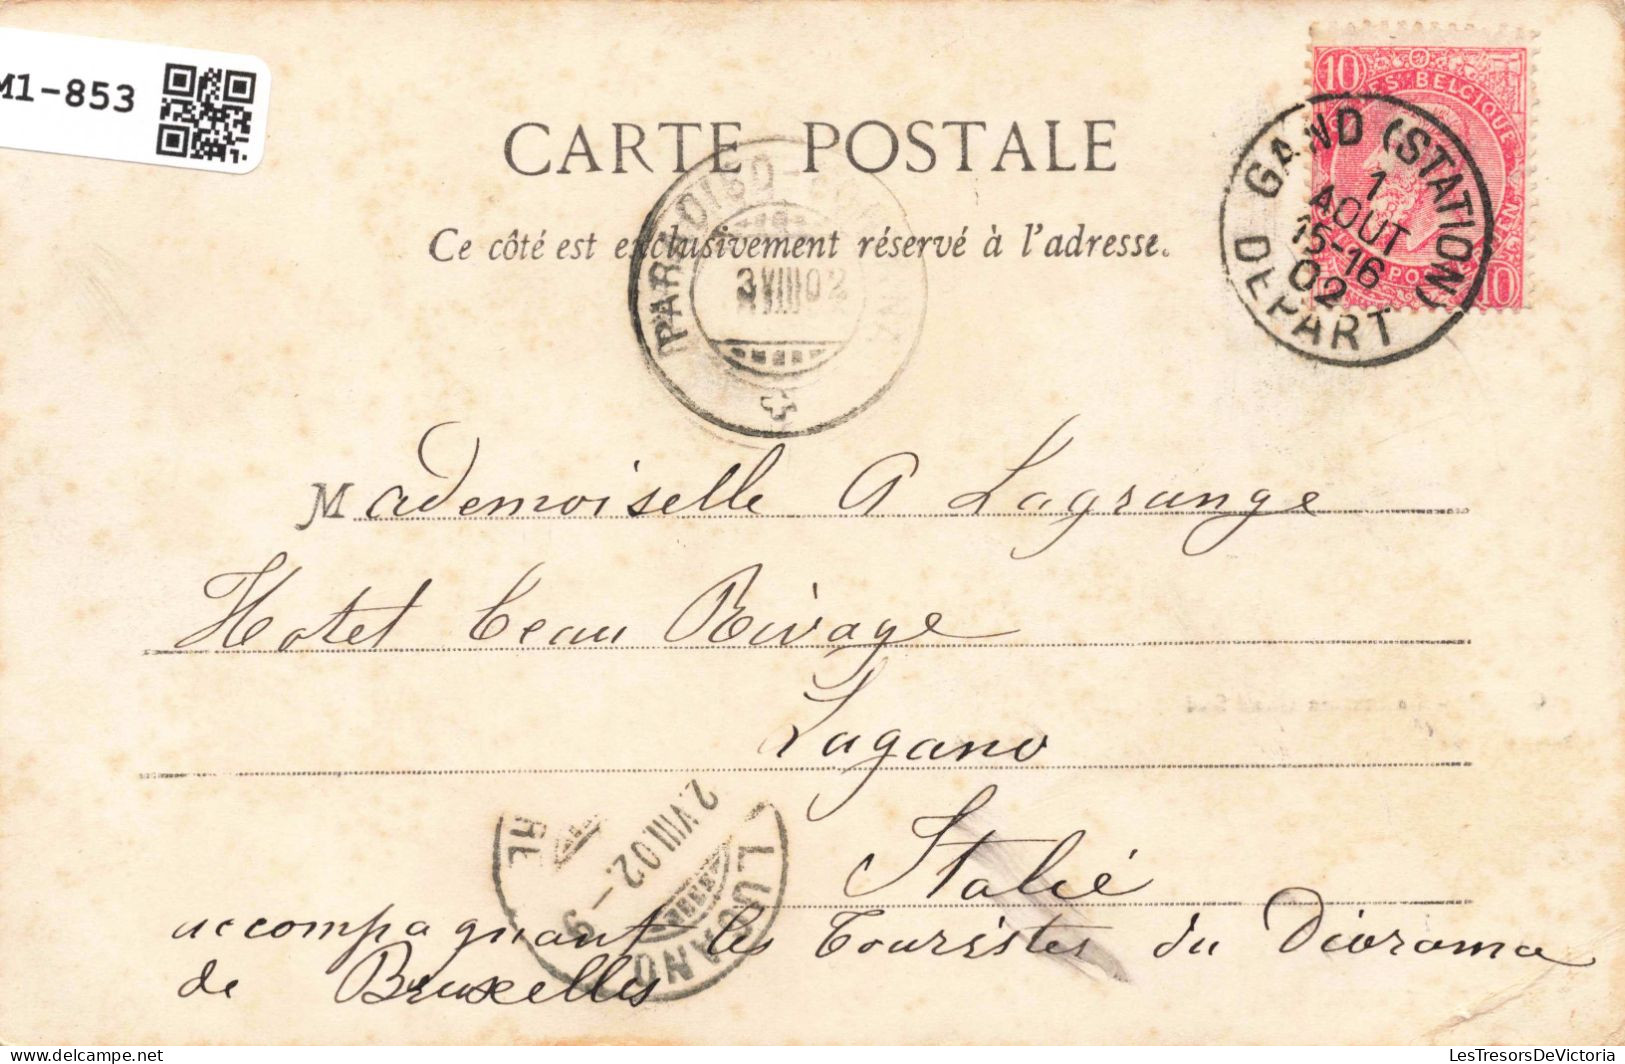 M1-853
CARTE POSTALE
Ce côté est exclusivement réservé à l'adresse.
10 10
POSTES BELGIQUE
GAND (STATION)
1
AOUT
15-16
02
DEPART
3 VIII 02
Mademoiselle A Lagrange
Hotel beau Rivage
Lugano
Italie
accompagnant les Touristes du Diorama
de Bruxelles
LUGANO
2.VIII.02.-9
LesTresorsDeVictoria @ Delcampe.net